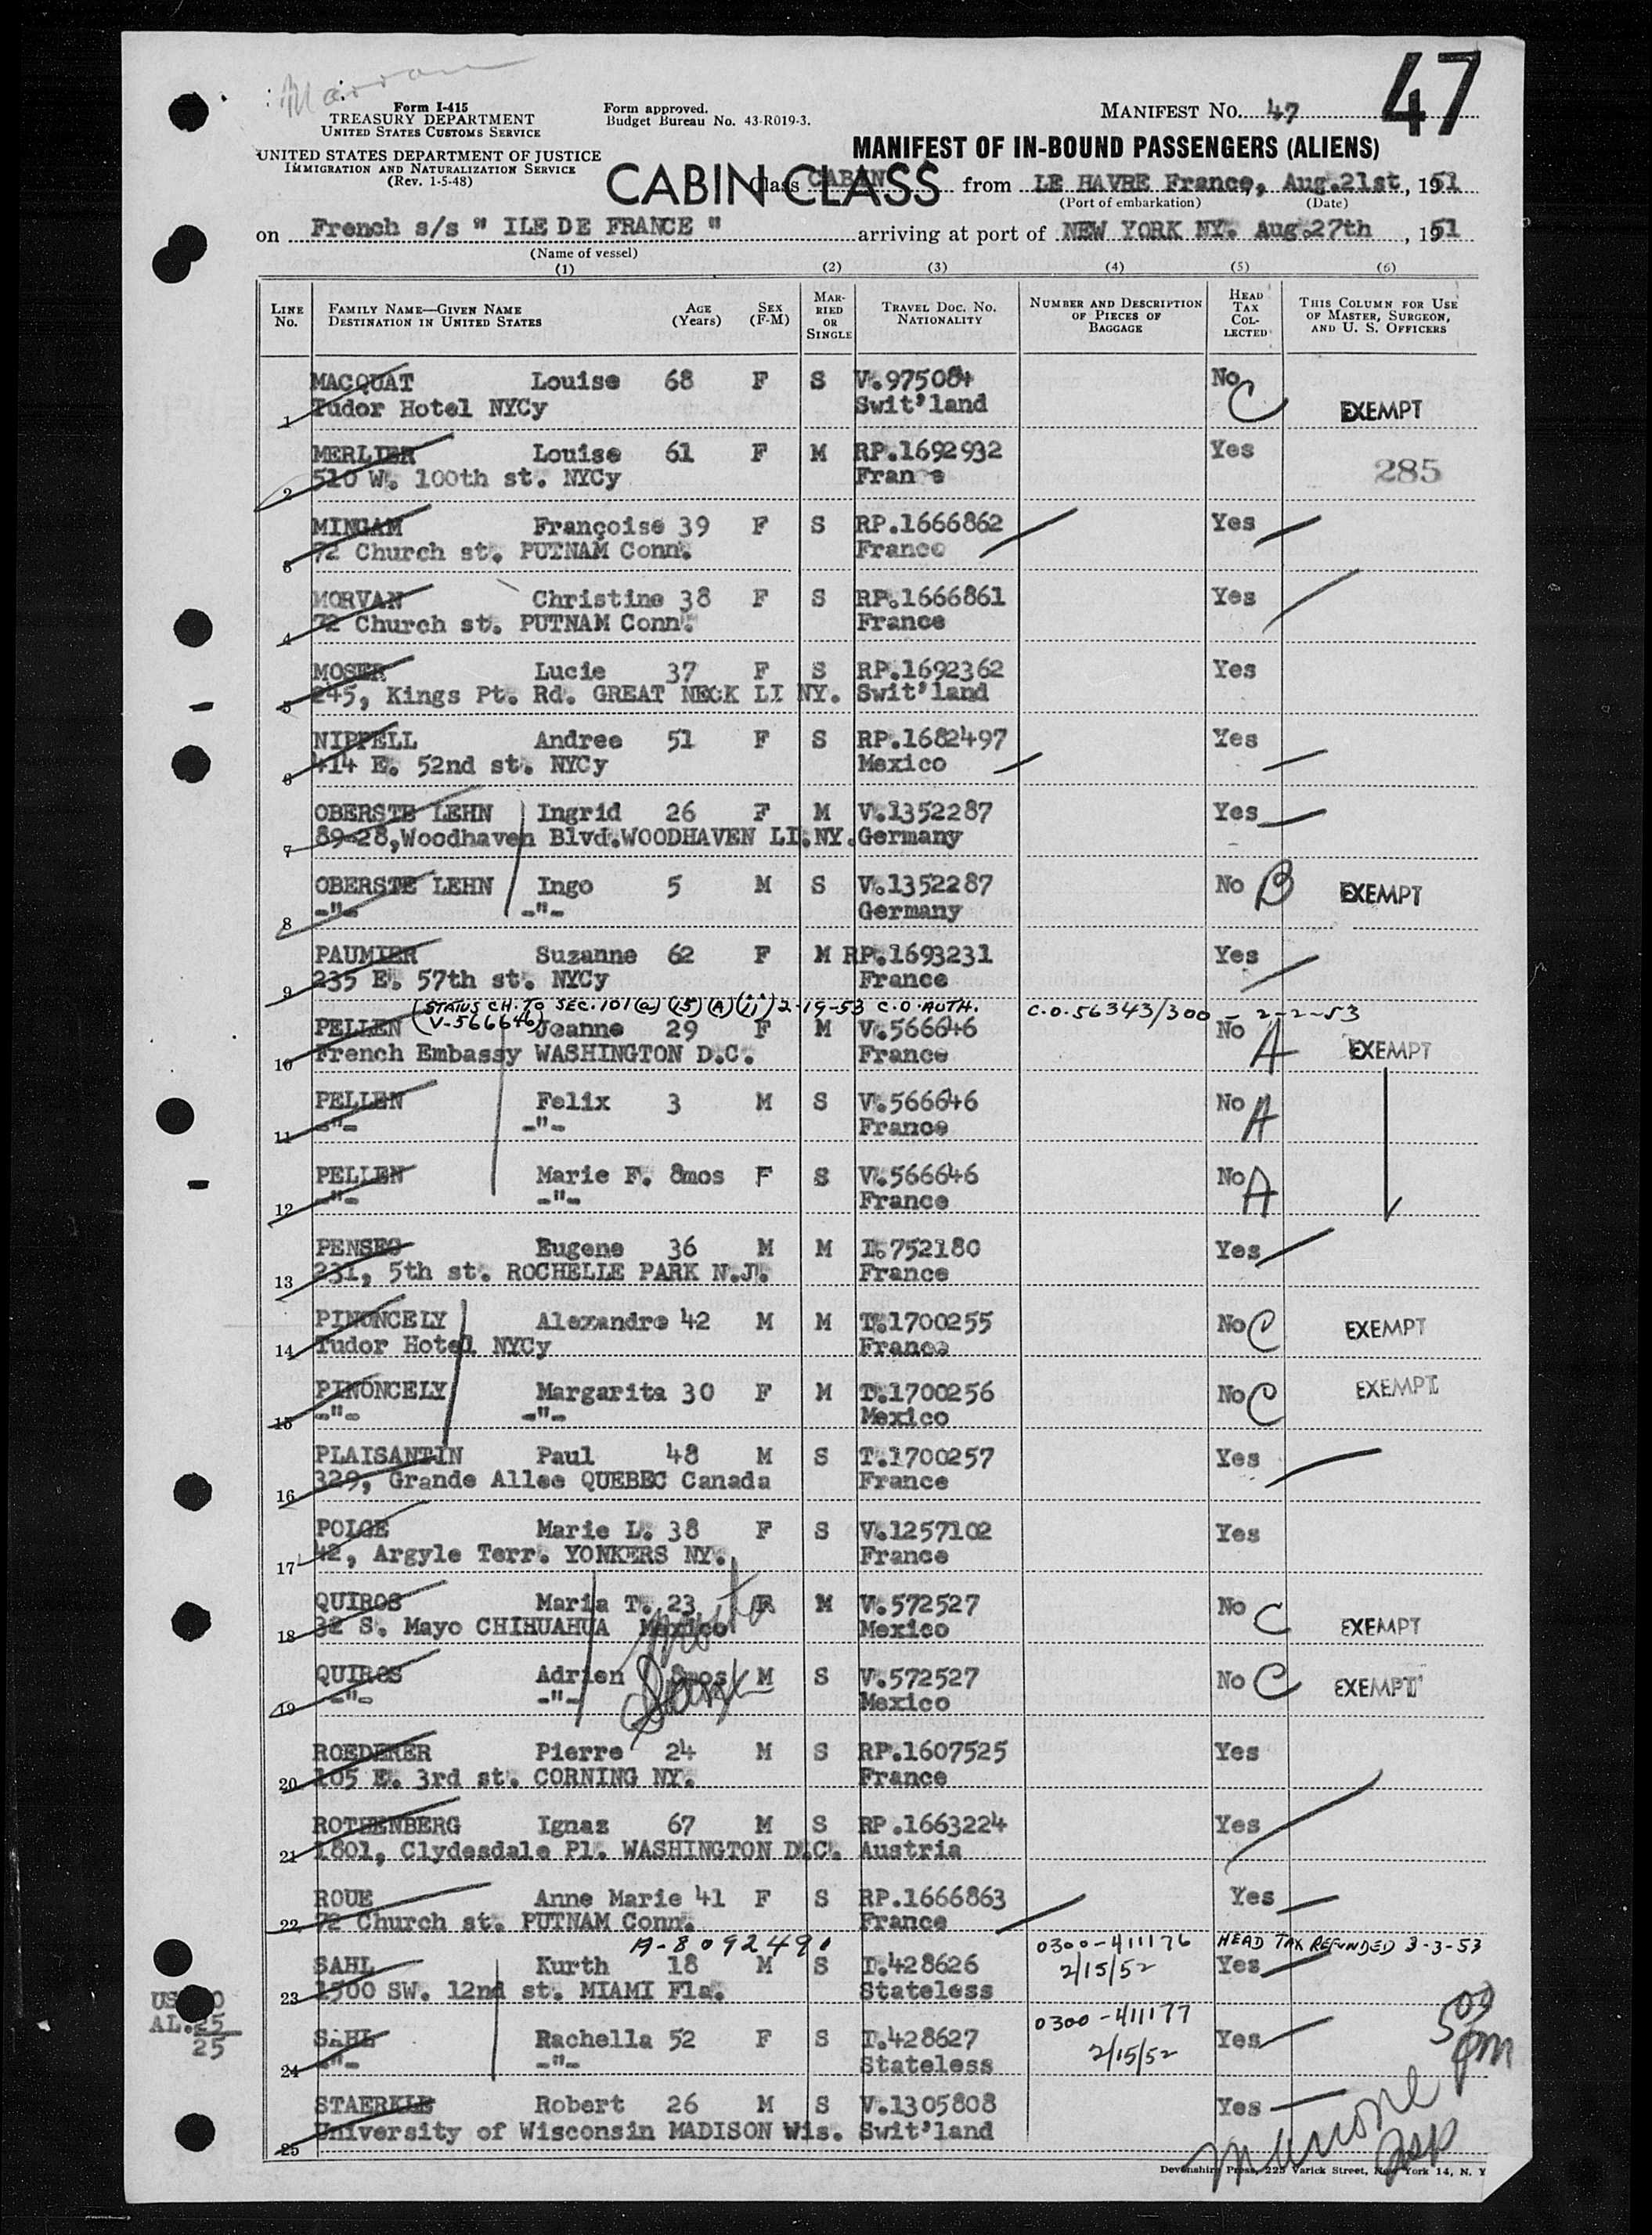 47
Form I-415
TREASURY DEPARTMENT
UNITED STATES CUSTOMS SERVICE
UNITED STATES DEPARTMENT OF JUSTICE
IMMIGRATION AND NATURALIZATION SERVICE
(Rev. 1-5-48)
Form approved.
Budget Bureau No. 43-R019-3.
MANIFEST NO. 47
MANIFEST OF IN-BOUND PASSENGERS (ALIENS)
CABIN CLASS
Class CABIN from LE HAVRE France, Aug.21st, 1951
(Port of embarkation) (Date)
on French s/s " ILE DE FRANCE " arriving at port of NEW YORK NY. Aug.27th, 1951
(Name of vessel)
(1) (2) (3) (4) (5) (6)
LINE No. FAMILY NAME—GIVEN NAME DESTINATION IN UNITED STATES AGE (Years) SEX (F-M) MARRIED OR SINGLE TRAVEL DOC. NO. NATIONALITY NUMBER AND DESCRIPTION OF PIECES OF BAGGAGE HEAD TAX COLLECTED THIS COLUMN FOR USE OF MASTER, SURGEON, AND U. S. OFFICERS
MACQUAT Louise 68 F S V.975084 No C
1 Tudor Hotel NYCy Swit'land EXEMPT
MERLIER Louise 61 F M RP.1692932 Yes
2 510 W. 100th st. NYCy Fran e 285
MINGAM Françoise 39 F S RP.1666862 Yes
3 72 Church st. PUTNAM Conn. France
MORVAN Christine 38 F S RP.1666861 Yes
4 72 Church st. PUTNAM Conn. France
MOSER Lucie 37 F S RP.1692362 Yes
5 245, Kings Pt. Rd. GREAT NECK LI NY. Swit'land
NIPPELL Andree 51 F S RP.1682497 Yes
6 414 E. 52nd st. NYCy Mexico
OBERSTE LEHN Ingrid 26 F M V.1352287 Yes
7 89-28,Woodhaven Blvd.WOODHAVEN LI.NY. Germany
OBERSTE LEHN Ingo 5 M S V.1352287 No B EXEMPT
8 -"- -"- Germany
PAUMIER Suzanne 62 F M RP.1693231 Yes
9 235 E. 57th st. NYCy France
(STATUS CH. TO SEC. 101(a)(15)(A)(ii) 2-19-53 C.O. AUTH. C.O. 56343/300 - 2-2-53
(V-566646)
PELLEN Jeanne 29 F M V.566646 No A
10 French Embassy WASHINGTON D.C. France EXEMPT
PELLEN Felix 3 M S V.566646 No A
11 -"- -"- France
PELLEN Marie F. 8mos F S V.566646 No A
12 -"- -"- France
PENSEC Eugene 36 M M I.752180 Yes
13 231, 5th st. ROCHELLE PARK N.J. France
PINONCELY Alexandre 42 M M T.1700255 No C EXEMPT
14 Tudor Hotel NYCy France
PINONCELY Margarita 30 F M T.1700256 No C EXEMPT
15 -"- -"- Mexico
PLAISANTIN Paul 48 M S T.1700257 Yes
16 329, Grande Allee QUEBEC Canada France
POLGE Marie L. 38 F S V.1257102 Yes
17 42, Argyle Terr. YONKERS NY. France
QUIROS Maria T. 23 F M V.572527 No C
18 32 S. Mayo CHIHUAHUA Mexico Mexico EXEMPT
QUIROS Adrien 8mos M S V.572527 No C EXEMPT
19 -"- -"- Mexico
ROEDERER Pierre 24 M S RP.1607525 Yes
20 105 E. 3rd st. CORNING NY. France
ROTHENBERG Ignaz 67 M S RP.1663224 Yes
21 1801, Clydesdale Pl. WASHINGTON D.C. Austria
ROUE Anne Marie 41 F S RP.1666863 Yes
22 72 Church st. PUTNAM Conn. France
A-8092490 0300-411176 HEAD TAX REFUNDED 3-3-53
SAHL Kurth 18 M S I.428626 2/15/52 Yes
23 1300 SW. 12nd st. MIAMI Fla. Stateless
0300-411177
SAHL Rachella 52 F S I.428627 Yes
24 -"- -"- Stateless 2/15/52
AL. 25
25
500 pm
STAERKLE Robert 26 M S V.1305808 Yes
25 University of Wisconsin MADISON Wis. Swit'land
Devonshire Press, 225 Varick Street, New York 14, N. Y